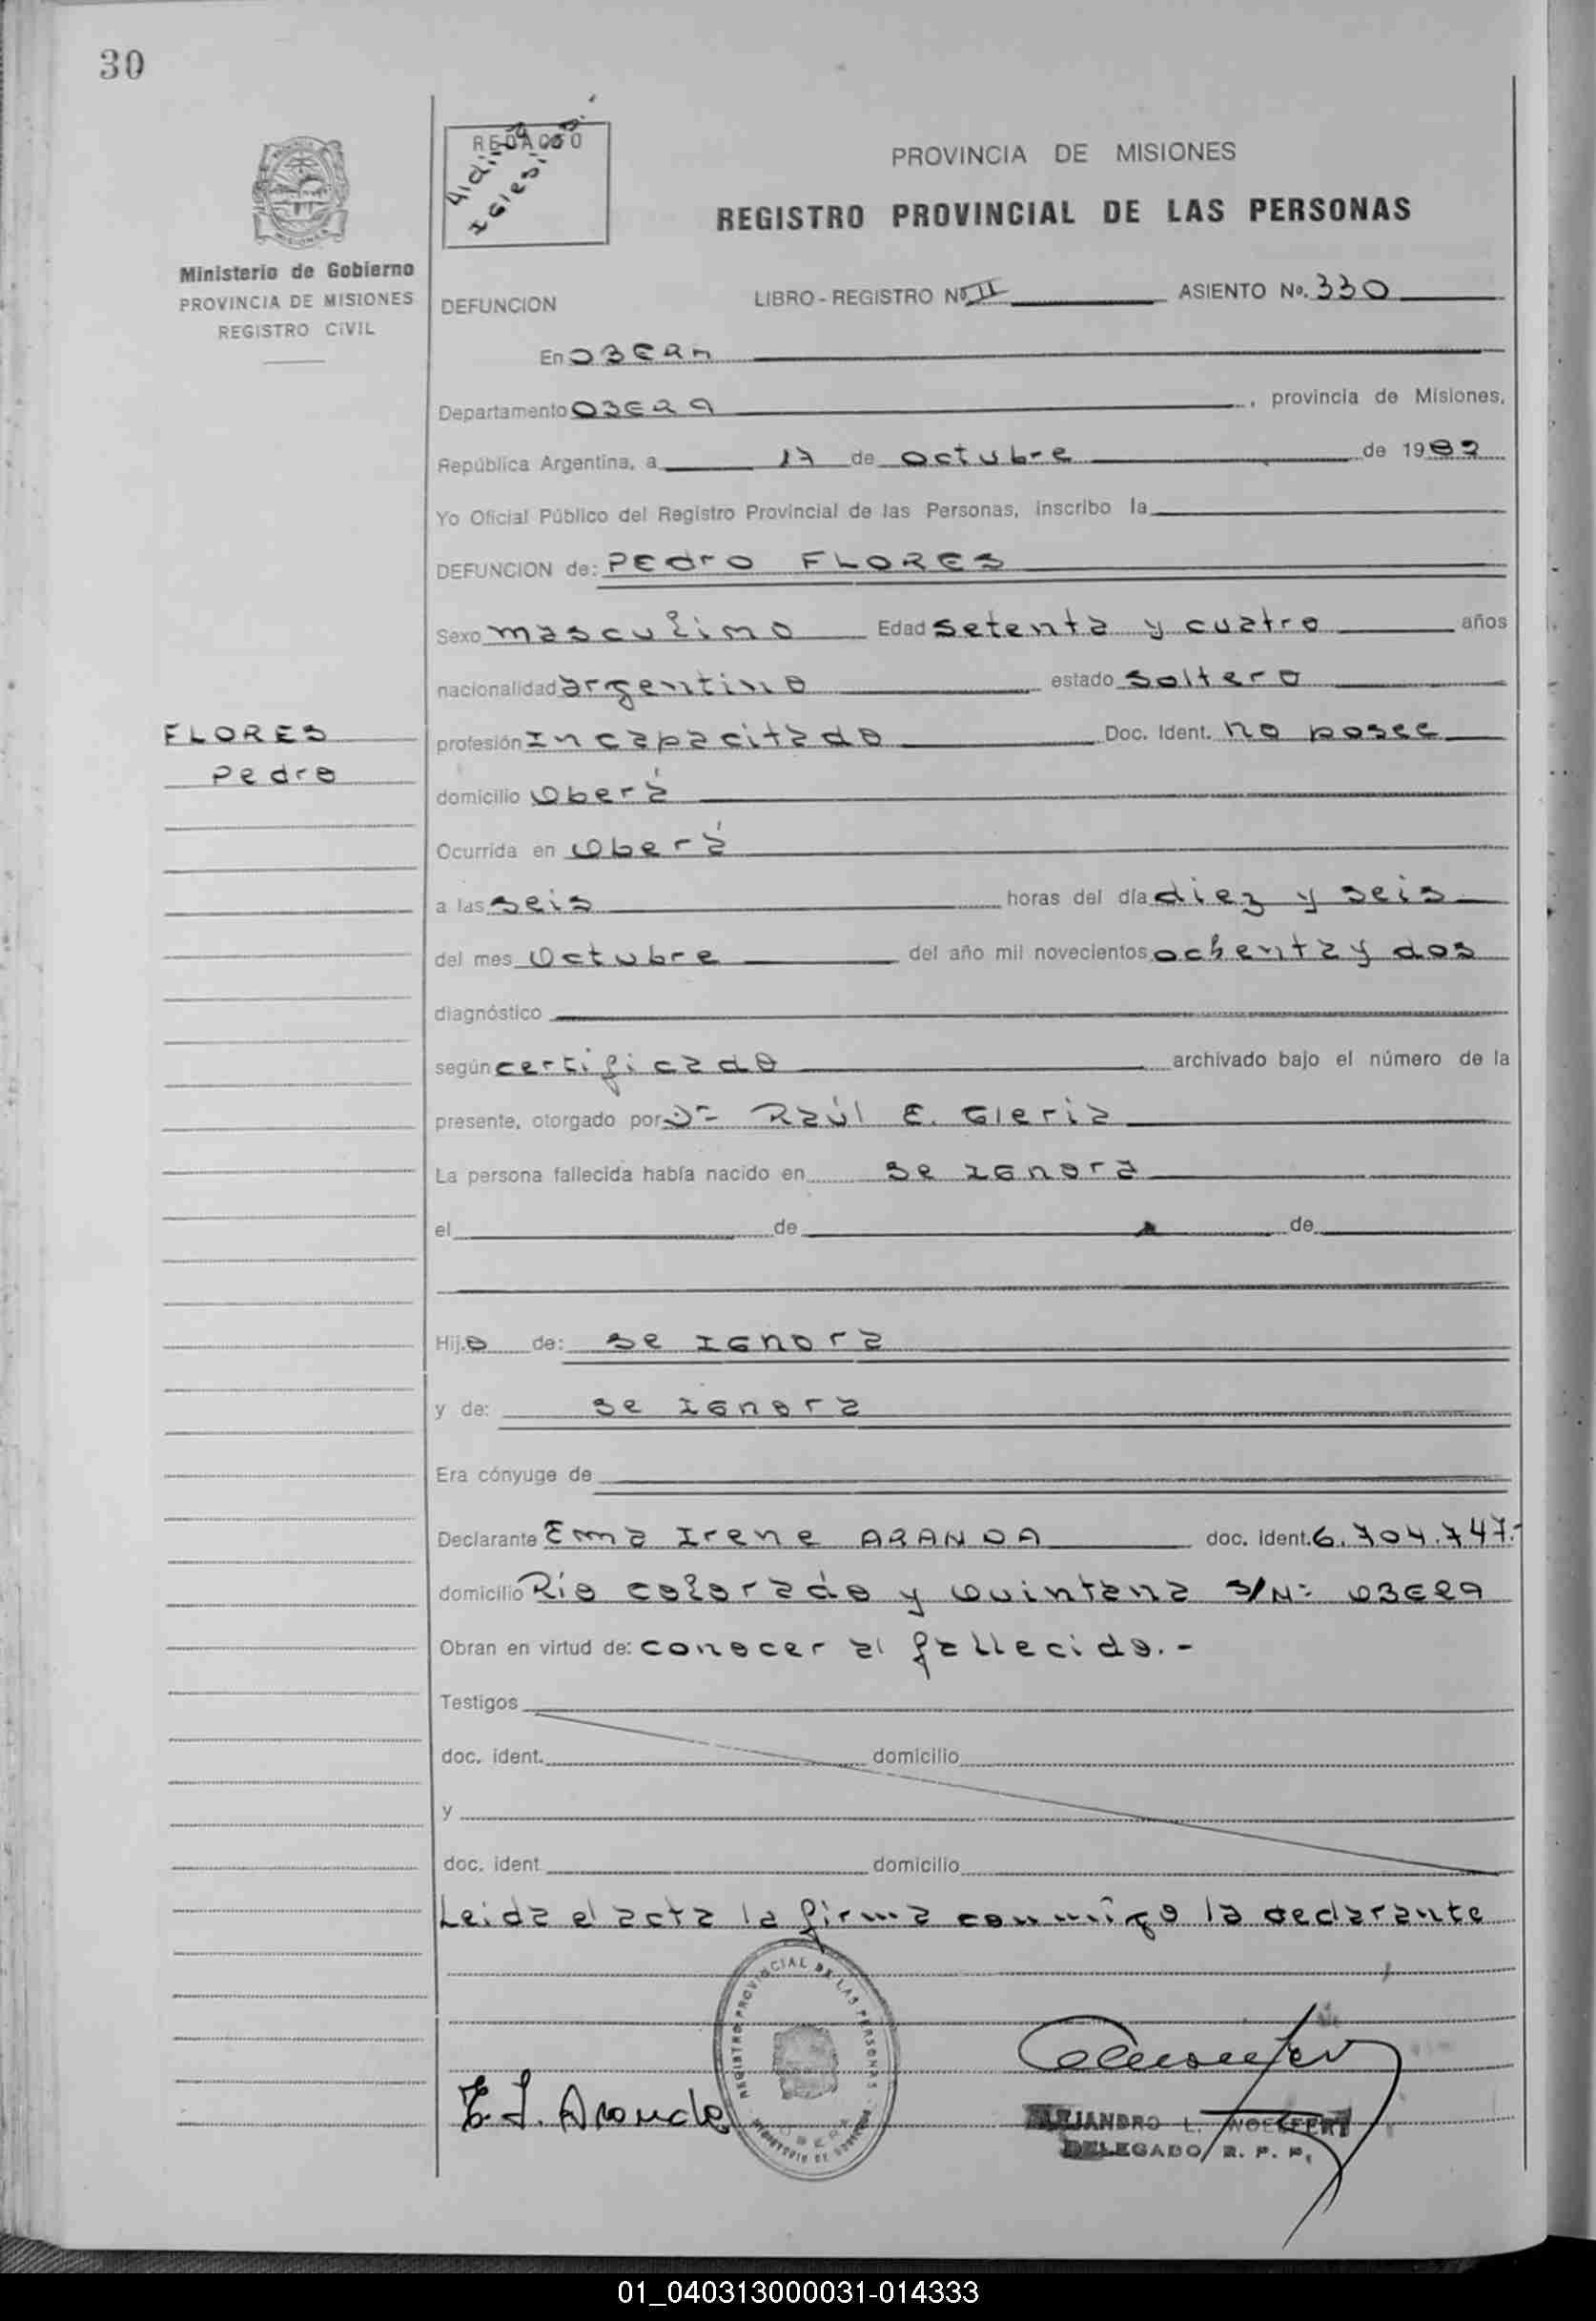 30
REDACTO
PROVINCIA DE MISIONES
REGISTRO PROVINCIAL DE LAS PERSONAS
Ministerio de Gobierno
PROVINCIA DE MISIONES
REGISTRO CIVIL
DEFUNCION LIBRO - REGISTRO Nº II ASIENTO Nº. 330
En OBERA
Departamento OBERA , provincia de Misiones,
República Argentina, a 17 de octubre de 1982
Yo Oficial Público del Registro Provincial de las Personas, inscribo la
DEFUNCION de: PEdro FLORES
Sexo masculino Edad setenta y cuatro años
nacionalidad argentino estado soltero
FLORES
Pedro
profesión Incapacitado Doc. Ident. no posee
domicilio Oberá
Ocurrida en Oberá
a las seis horas del día diez y seis
del mes Octubre del año mil novecientos ochenta y dos
diagnóstico
según certificado archivado bajo el número de la
presente, otorgado por Dr Raúl E. Gleria
La persona fallecida había nacido en se Ignora
el de de
Hijo de: se Ignora
y de: se Ignora
Era cónyuge de
Declarante Ema Irene ARANDA doc. ident. 6.704.747.-
domicilio Río colorado y Quintana S/Nº OBERA
Obran en virtud de: conocer al fallecido.-
Testigos
doc. ident. domicilio
y
doc. ident domicilio
Leida el acta la firma conmigo la declarante
REGISTRO PROVINCIAL DE LAS PERSONAS
OBERA
MINISTERIO DE GOBIERNO
E. I. Aranda
ALEJANDRO L. WOELFERT
DELEGADO R. P. P.
01_040313000031-014333